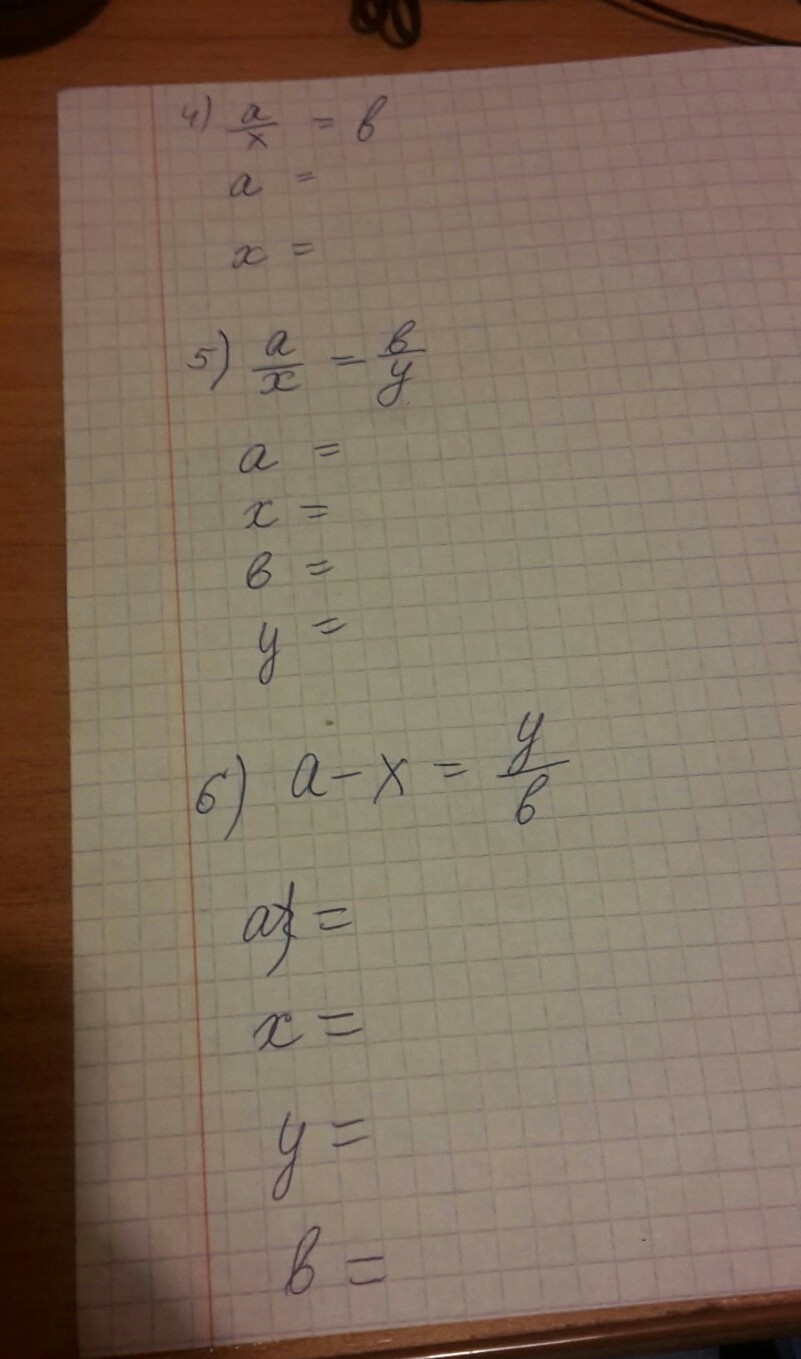 4) a/x = в
a =
x =
5) a/x = в/y
a =
x =
в =
y =
6) a - x = y/в
a =
x =
y =
в =